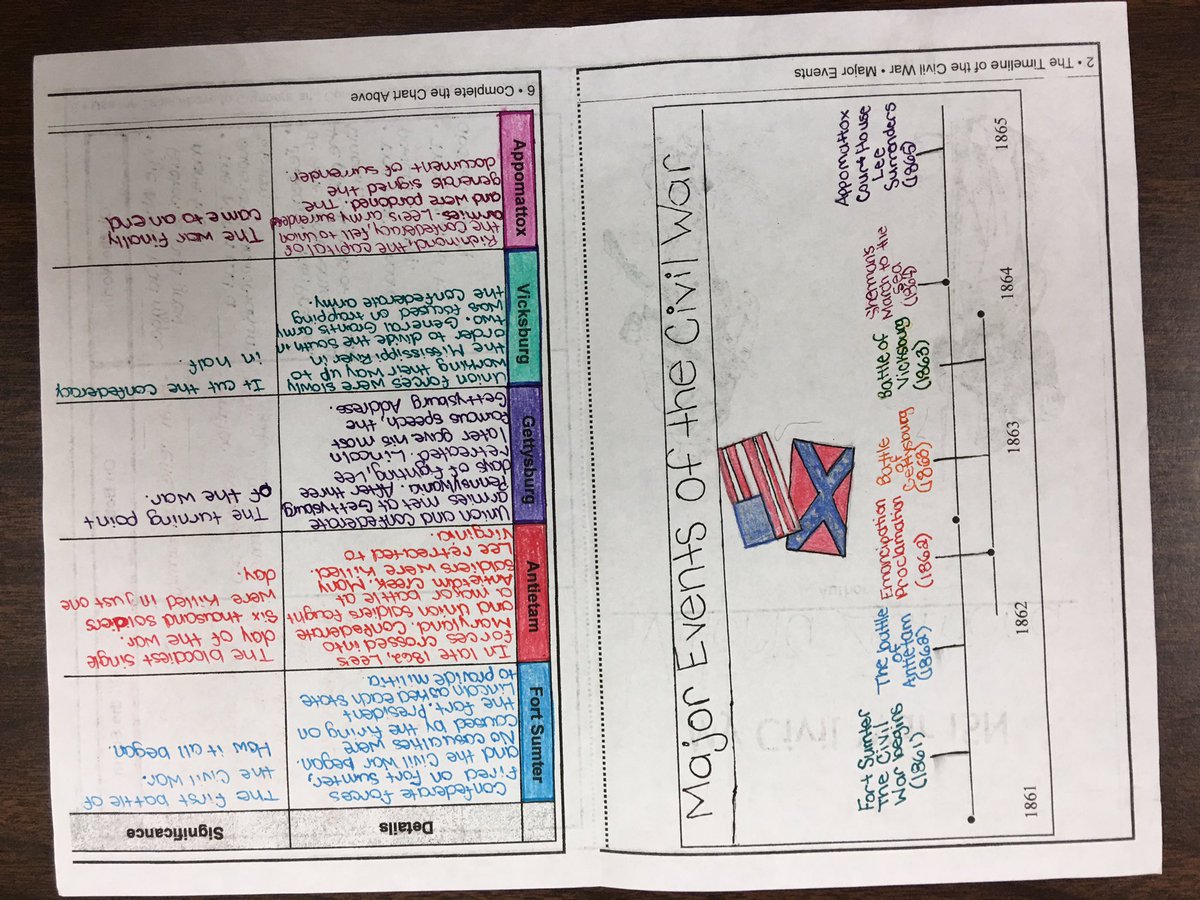 2 • The Timeline of the Civil War • Major Events
Major Events of the Civil War
Fort Sumter
The Civil
War begins
(1861)
The battle
of
Antietam
(1862)
Emancipation
Proclamation
(1862)
Battle
of
Gettysburg
(1863)
Battle of
Vicksburg
(1863)
Sherman's
March to the
Sea
(1864)
Appomattox
Court House
Lee
Surrenders
(1865)
1861
1862
1863
1864
1865
6 • Complete the Chart Above
Details
Significance
Fort Sumter
Confederate forces
fired on Fort Sumter,
and the Civil War began.
No casualties were
caused by the firing on
the fort. President
Lincoln asked each state
to provide militia
The first battle of
the Civil War.
How it all began.
Antietam
In late 1862, Lee's
forces crossed into
Maryland. Confederate
and Union soldiers fought
a major battle at
Antietam Creek. Many
soldiers were killed.
Lee retreated to
Virginia.
The bloodiest single
day of the war.
Six thousand soldiers
were killed in just one
day.
Gettysburg
Union and confederate
armies met at Gettysburg
Pennsylvania. After three
days of fighting, Lee
retreated. Lincoln
later gave his most
famous speech, the
Gettysburg Address.
The turning point
of the war.
Vicksburg
Union forces were slowly
working their way up to
the Mississippi River in
order to divide the South in
two. General Grants army
was focused on trapping
the Confederate army.
It cut the confederacy
in half.
Appomattox
Richmond, the capital of
the Confederacy, fell to Union
armies. Lee's army surrended
and were pardoned. The
generals signed the
document of surrender.
The war finally
came to an end